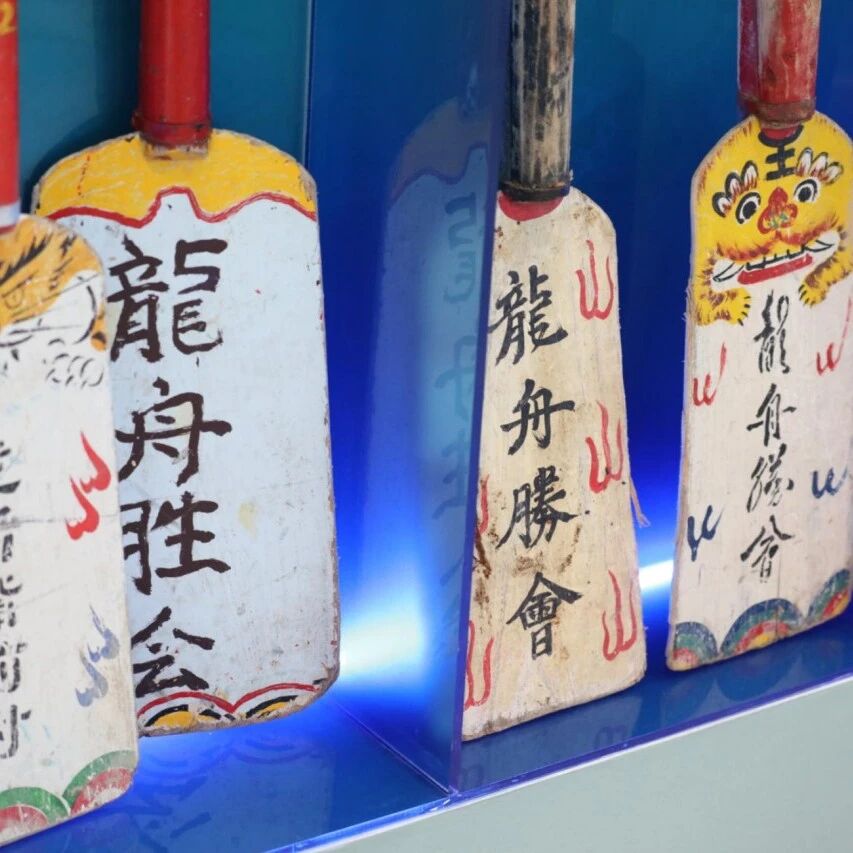 龍舟胜会
龍舟勝會
王
龍舟勝會